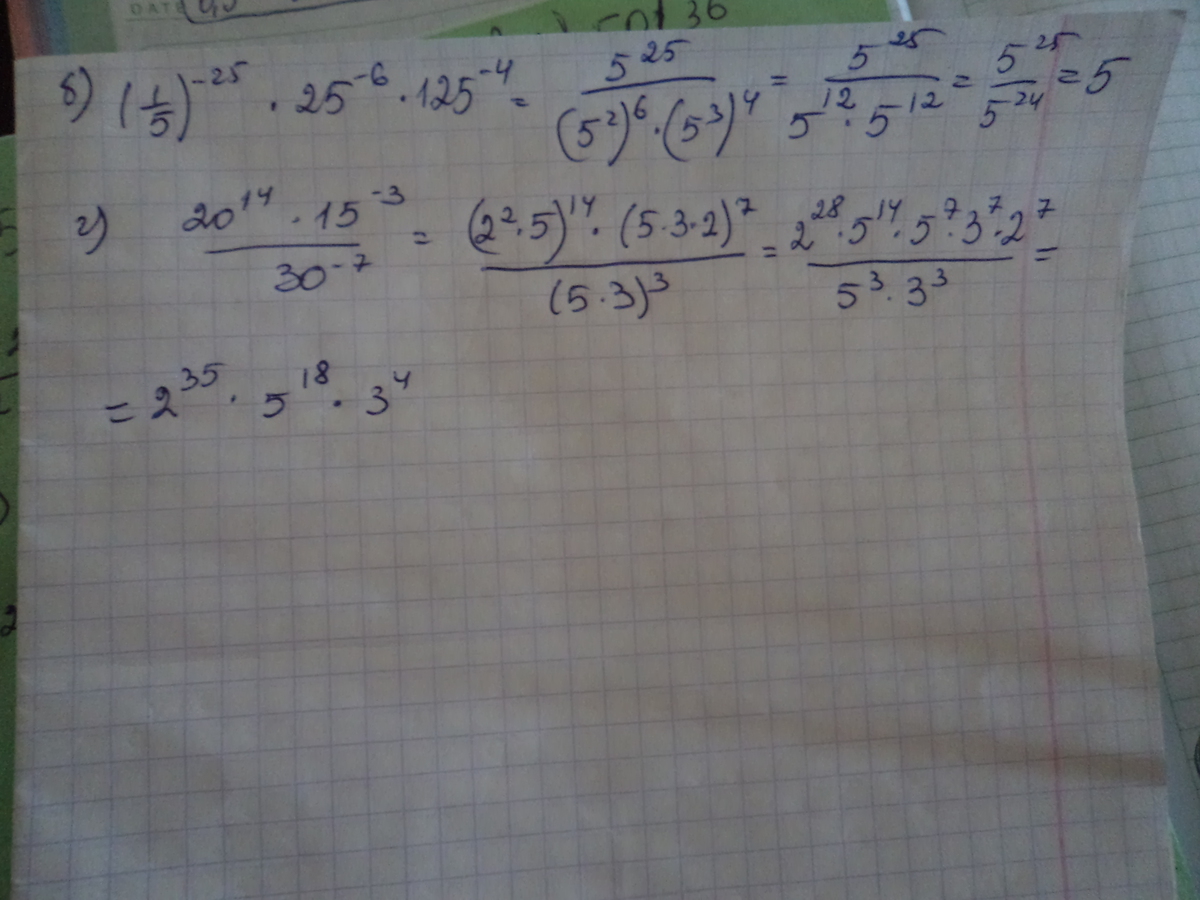 DATE
36
б) (1/5)^-25 · 25^-6 · 125^-4 = 5^25 / ((5^2)^6 · (5^3)^4) = 5^25 / (5^12 · 5^12) = 5^25 / 5^24 = 5
г) (20^14 · 15^-3) / 30^-7 = ((2^2 · 5)^14 · (5 · 3 · 2)^7) / (5 · 3)^3 = (2^28 · 5^14 · 5^7 · 3^7 · 2^7) / (5^3 · 3^3) =
= 2^35 · 5^18 · 3^4